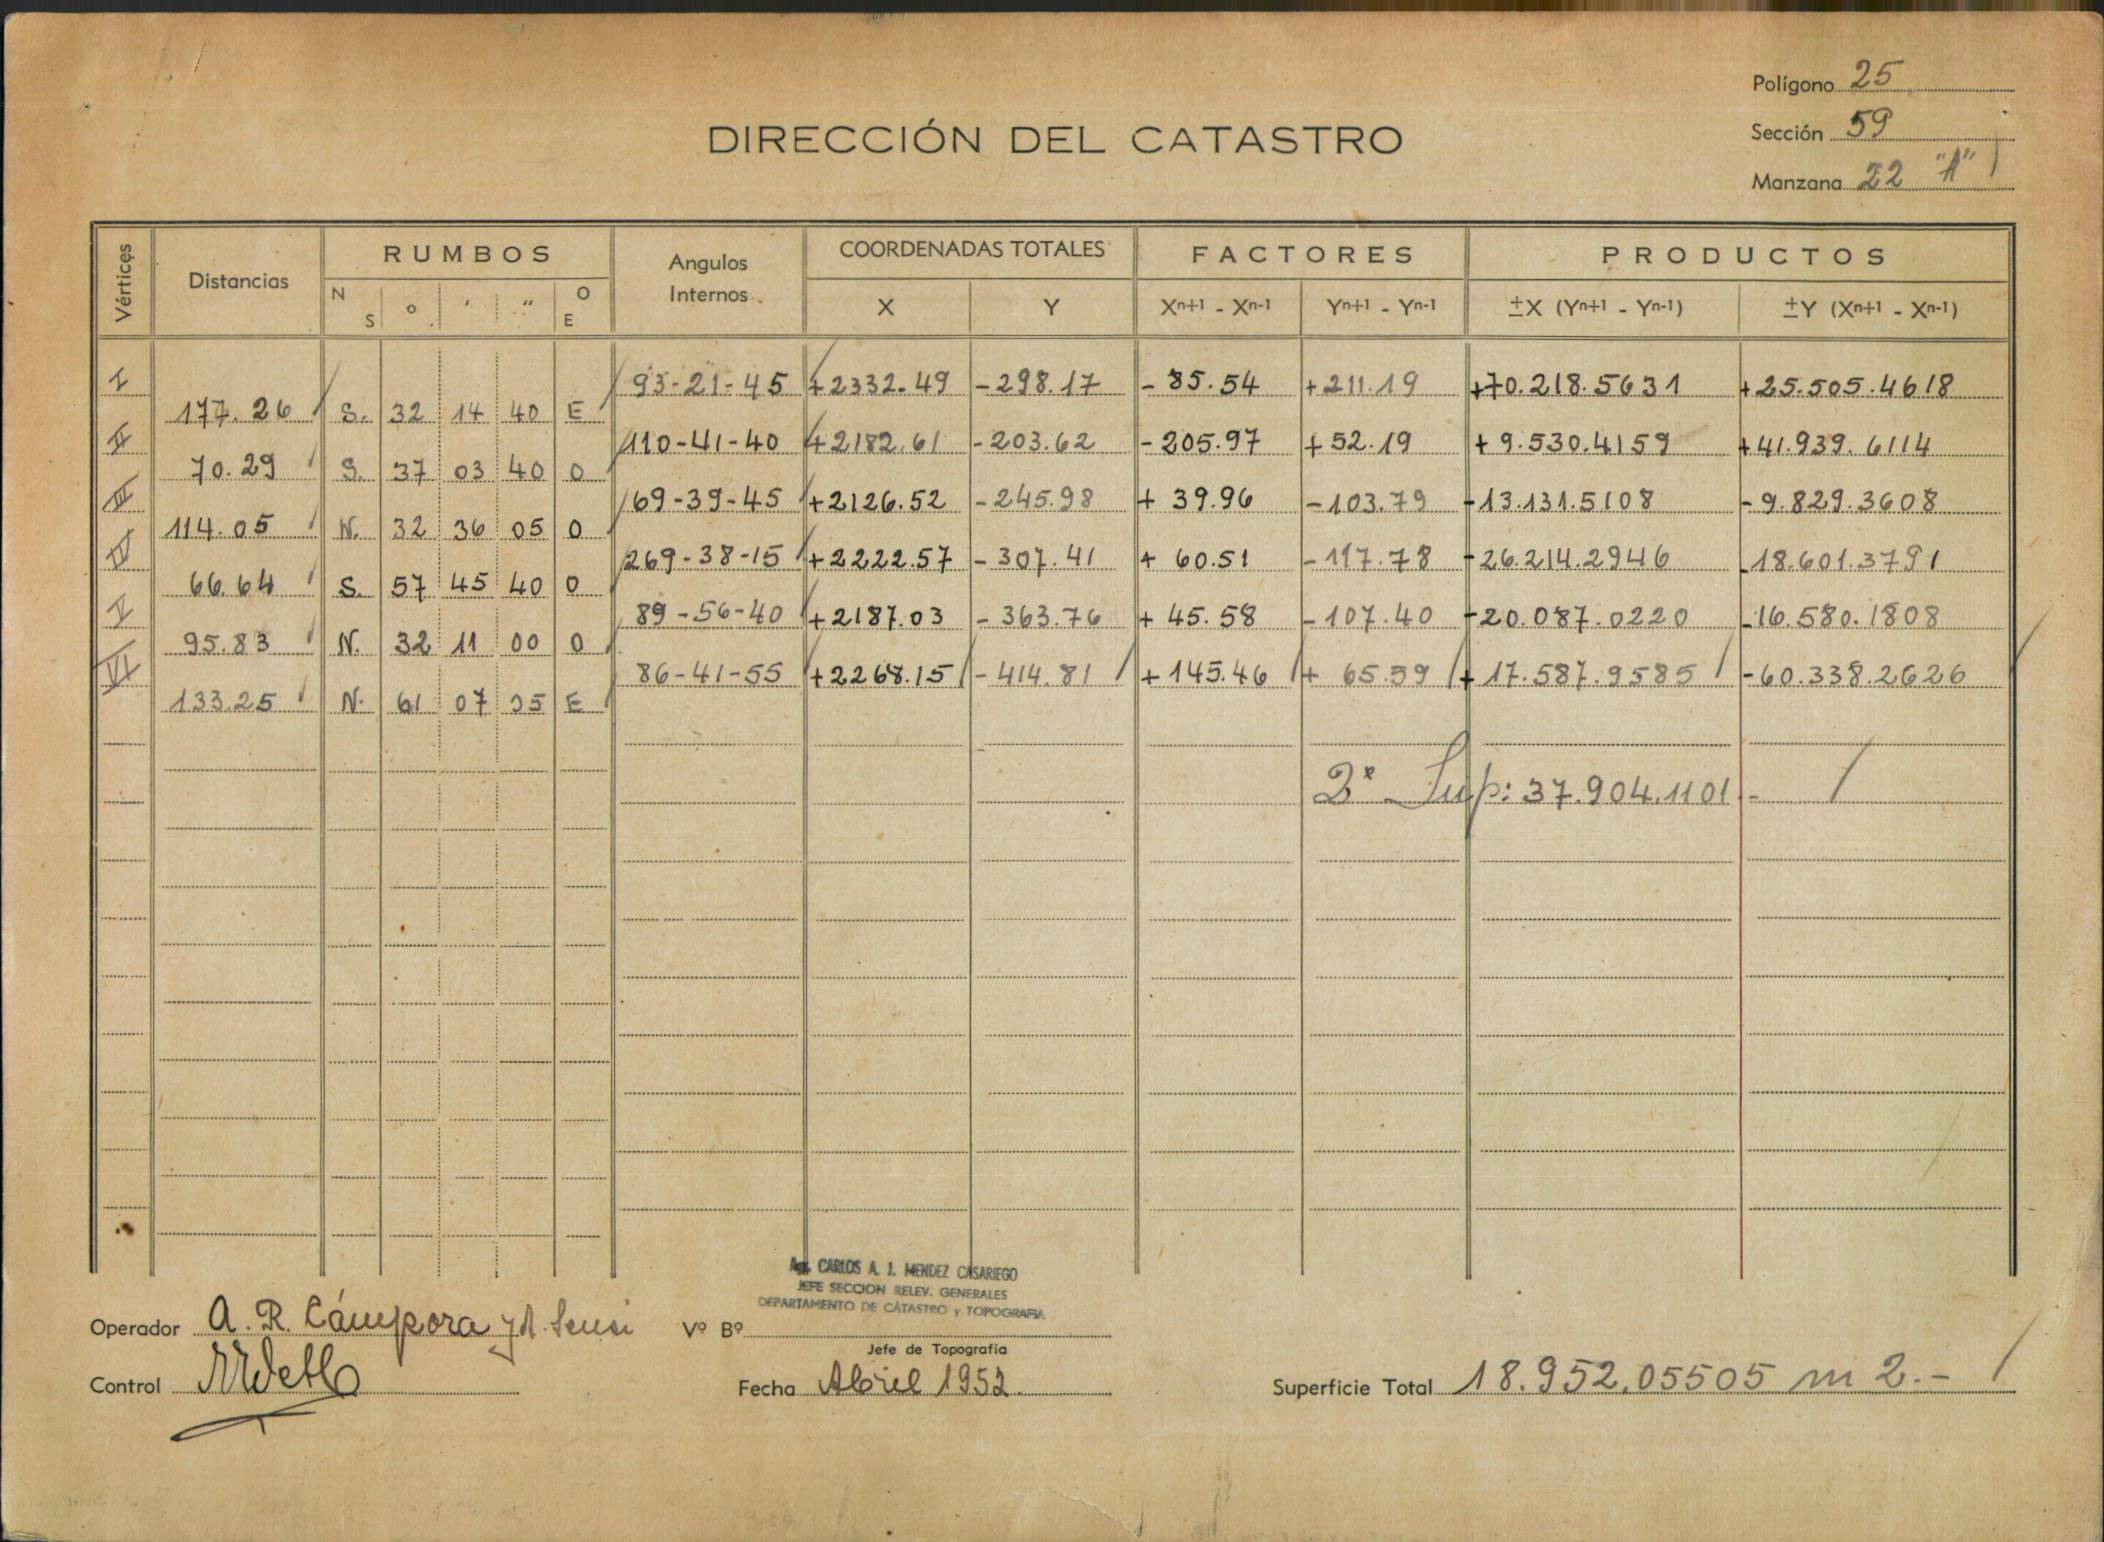 Polígono 25
DIRECCIÓN DEL CATASTRO
Sección 59
Manzana 22 "A"
Vértices Distancias RUMBOS N S o ' " O E Angulos Internos COORDENADAS TOTALES X Y FACTORES Xn+1 - Xn-1 Yn+1 - Yn-1 PRODUCTOS ±X (Yn+1 - Yn-1) ±Y (Xn+1 - Xn-1)
I 93-21-45 +2332.49 -298.17 -85.54 +211.19 +70.218.5631 +25.505.4618
177.26 S. 32 14 40 E
II 110-41-40 +2182.61 -203.62 -205.97 +52.19 +9.530.4159 +41.939.6114
70.29 S. 37 03 40 O
III 69-39-45 +2126.52 -245.98 +39.96 -103.79 -13.131.5108 -9.829.3608
114.05 N. 32 36 05 O
IV 269-38-15 +2222.57 -307.41 +60.51 -117.78 -26.214.2946 -18.601.3791
66.64 S. 57 45 40 O
V 89-56-40 +2187.03 -363.76 +45.58 -107.40 -20.087.0220 -16.580.1808
95.83 N. 32 11 00 O
VI 86-41-55 +2268.15 -414.81 +145.46 +65.59 +17.587.9585 -60.338.2626
133.25 N. 61 07 05 E
2ª Sup: 37.904.1101.-
Agr. CARLOS A. J. MENDEZ CASARIEGO
JEFE SECCION RELEV. GENERALES
DEPARTAMENTO DE CATASTRO y TOPOGRAFIA
Operador A. R. Cámpora y A. Sensi Vº Bº
Jefe de Topografía
Control Fecha Abril 1952. Superficie Total 18.952.05505 m2.-